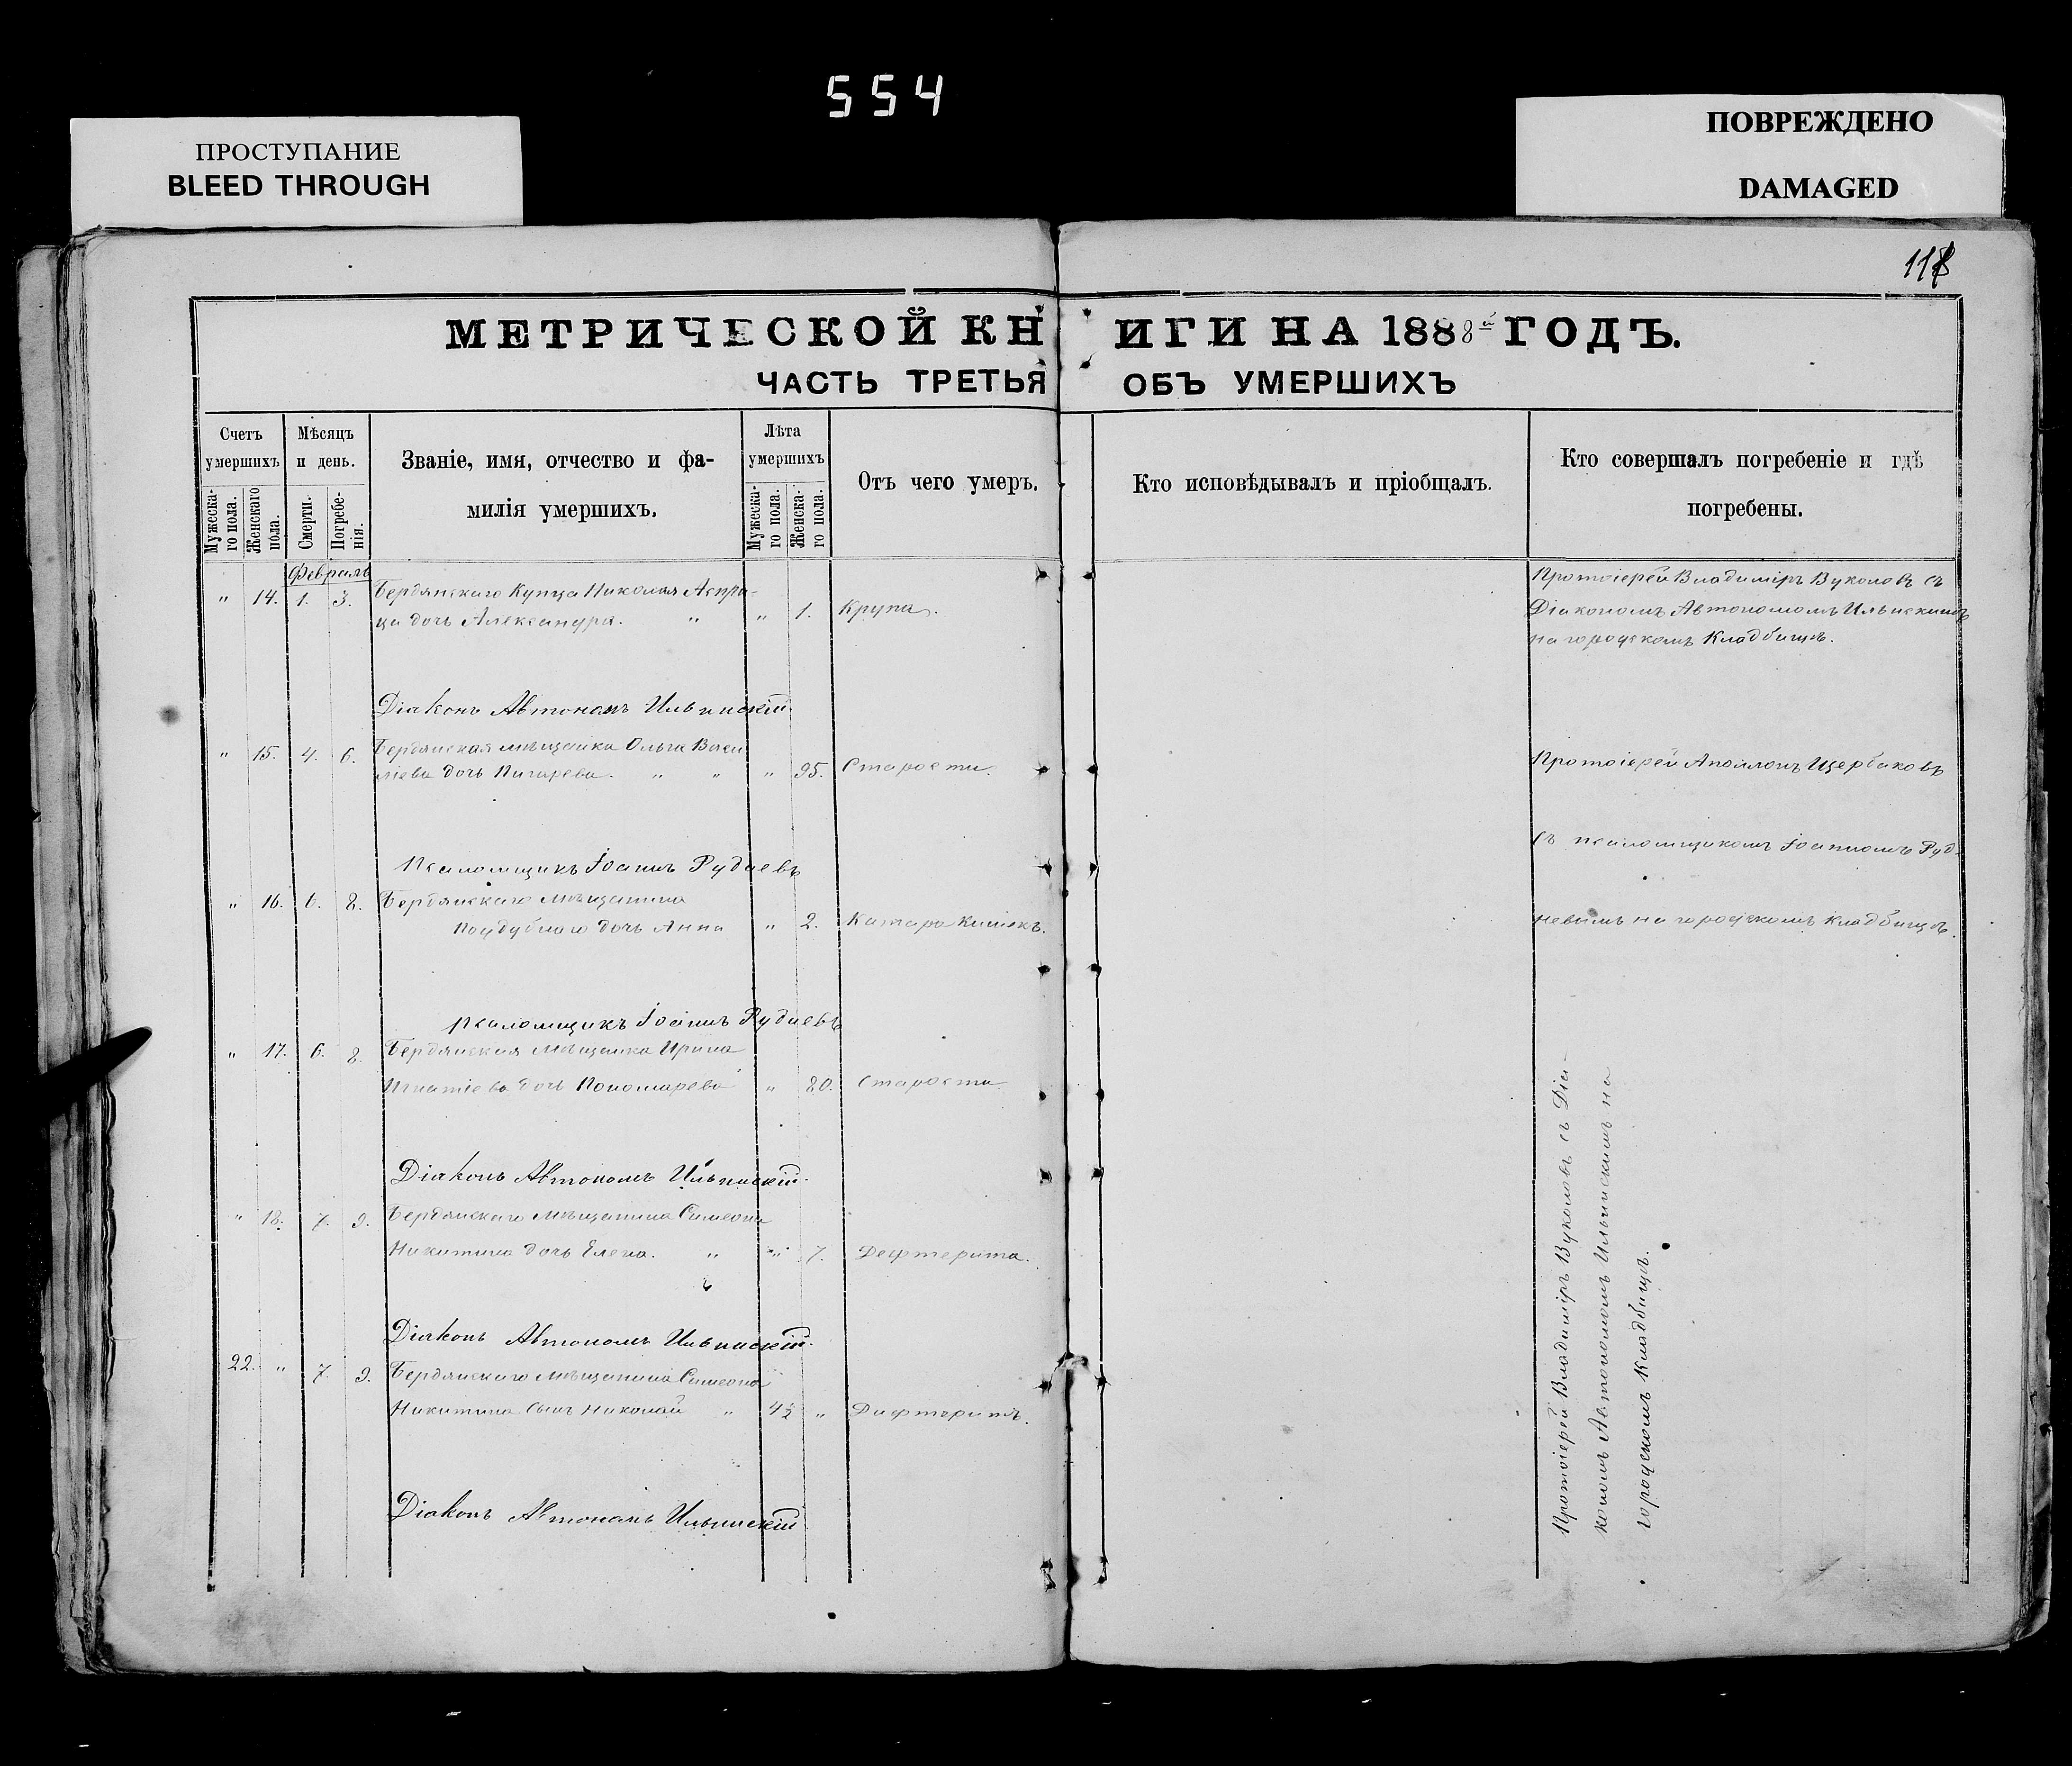 554
ПРОСТУПАНИЕ
BLEED THROUGH
ПОВРЕЖДЕНО
DAMAGED
118
МЕТРИЧЕСКОЙ КНИГИ НА 1888й ГОДЪ.
ЧАСТЬ ТРЕТЬЯ ОБЪ УМЕРШИХЪ
Счетъ умершихъ
Мужеска-го пола.
Женскаго пола.
Мѣсяцъ и день.
Смерти.
Погребе-нія.
Званіе, имя, отчество и фа-
милія умершихъ.
Лѣта умершихъ
Мужеска-го пола.
Женска-го пола.
Отъ чего умеръ.
Кто исповѣдывалъ и пріобщалъ.
Кто совершалъ погребеніе и гдѣ
погребены.
Февраль
" 14. 1. 3. Бердянскаго Купца Николая Аспри-
ци дочь Александра. " " 1. Крупа.
Протоіерей Владиміръ Вуколовъ съ
Діакономъ Автономомъ Ильинскимъ
на городскомъ Кладбищѣ.
Діаконъ Автономъ Ильинскій
" 15. 4. 6. Бердянская мѣщанка Ольга Васи
ліева дочь Пигарева. " " " 95. Старости.
Протоіерей Аполлонъ Щербаковъ
съ псаломщикомъ Іоанномъ Руд-
Псаломщикъ Іоаннъ Рудневъ
" 16. 6. 8. Бердянскаго мѣщанина
Поддубного дочь Анна " 2. Катара Кишокъ.
невымъ на городскомъ кладбищѣ.
Псаломщикъ Іоаннъ Рудневъ
" 17. 6. 8. Бердянская мѣщанка Ирина
Игнатіева дочь Пономарева " 80. Старости
Діаконъ Автономъ Ильинскій.
" 18. 7. 9. Бердянскаго мѣщанина Симеона
Никитина дочь Елена. " " 7. Дефтерита.
Діаконъ Автономъ Ильинскій.
22. " 7. 9. Бердянскаго мѣщанина Симеона
Никитина сынъ Николай " 4½ " Дифтеритъ.
Діаконъ Автономъ Ильинскій
Протоіерей Владиміръ Вуколовъ съ Діа-
кономъ Автономомъ Ильинскимъ на
городскомъ Кладбищѣ.